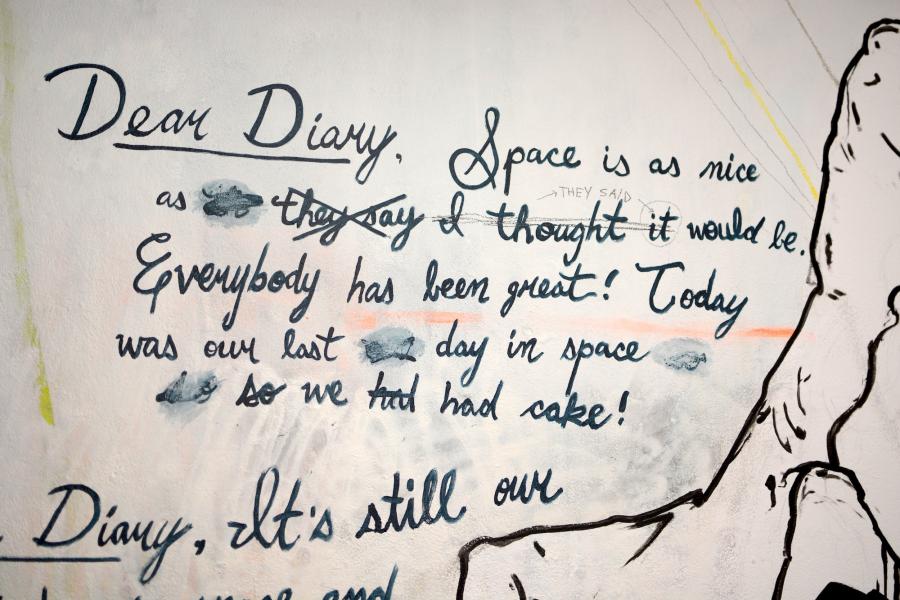 Dear Diary, Space is as nice
THEY SAID
as they say I thought it would be.
Everybody has been great! Today
was our last day in space
so we had had cake!
Diary, It's still our
and